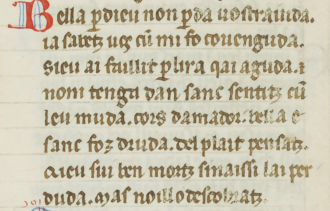 Bella ꝑdieu non ꝑda uostraiuda.
ia sabetz uos cũ mi fo couenguda.
Sieu ai faillit ꝑlira qai aguda. i
noni tengu dan sanc sentitz cũ
leu muda. cors damador. bella e
sanc foz diuda. del plait pensatz.
eieu sui ben mortz sinaissi lai per
duda. Mas noillo descobratz.